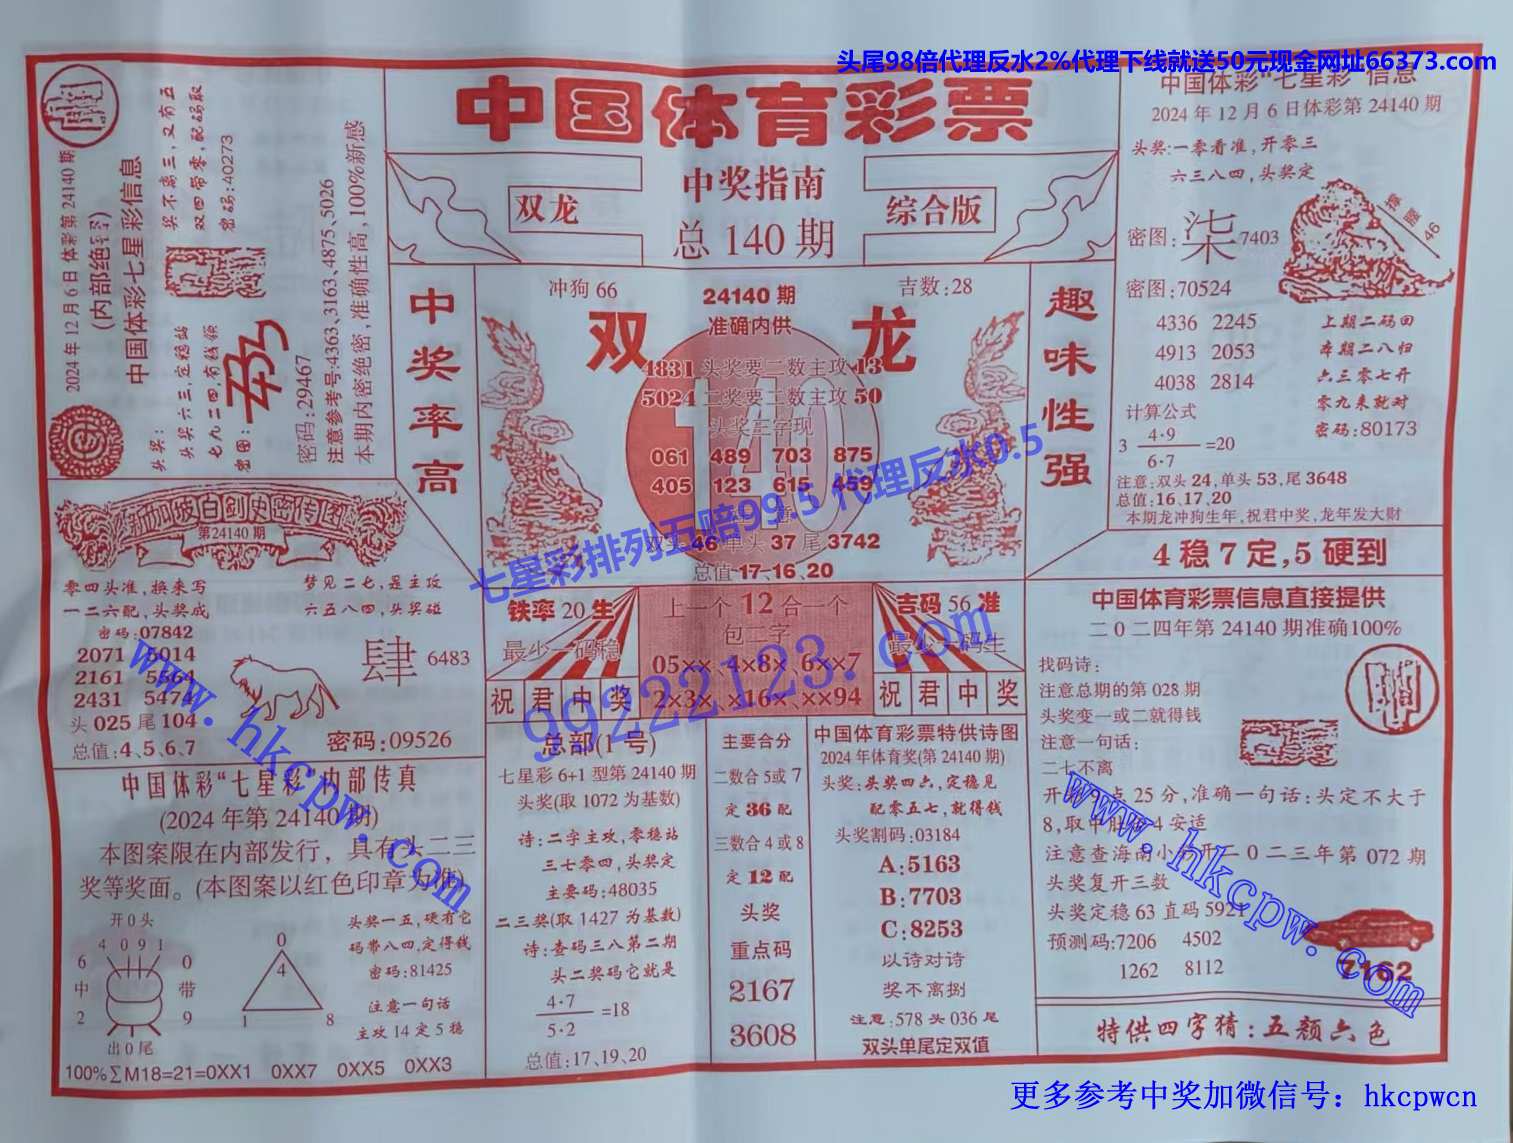 头尾98倍代理反水2%代理下线就送50元现金网址66373.com
中国体育彩票
中奖指南
双龙
综合版
总 140 期
2024年12月6日 体彩第24140期
(内部绝密)
中国体彩七星彩信息
奖不离三,又有五
双四带零,配码取
密码:40273
头奖:
头奖六三,定稳站
七九二四,有钱领
密图:
密码:29467
注意参考号:4363、3163、4875、5026
本期内密绝密,准确性高,100%新感
中奖率高
冲狗 66
24140 期
吉数:28
双 龙
准确内供
4831 头奖要二数主攻 13
5024 二奖要二数主攻 50
头奖三字现
061 489 703 875
405 123 615 459
双头 46 单头 37 尾 3742
总值 17、16、20
趣味性强
中国体彩"七星彩"信息
2024年12月6日体彩第24140期
头奖:一零看准,开零三
六三八四,头奖定
密图:柒 7403
46
密图:70524
4336 2245
4913 2053
4038 2814
上期二码回
本期二八归
六三零七开
零九来就对
密码:80173
计算公式
3 4·9
6·7
=20
注意:双头 24,单头 53,尾 3648
总值:16、17、20
本期龙冲狗生年,祝君中奖,龙年发大财
4 稳 7 定,5 硬到
新加坡白剑史密传图
第24140期
零四头准,换来写
一二六配,头奖成
密码:07842
梦见二七,是主攻
六五八四,头奖碰
2071 5014
2161 5564
2431 5474
肆 6483
头 025 尾 104
总值:4、5、6、7
密码:09526
铁率 20 生
最少一码稳
祝君中奖
上一个 12 合一个
包二字
05×× 4×8× 6××7
2×3× ×16× ××94
吉码 56 准
最少一码生
祝君中奖
中国体育彩票信息直接提供
二0二四年第 24140 期准确100%
找码诗:
注意总期的第 028 期
头奖变一或二就得钱
注意一句话:
二七不离
开奖9点 25 分,准确一句话:头定不大于
注意查海南小奖开二0二三年第 072 期
头奖复开三数
头奖定稳 63 直码 5921
预测码:7206 4502
1262 8112
7162
特供四字猜:五颜六色
中国体彩"七星彩"内部传真
(2024 年第 24140 期)
本图案限在内部发行，具有头二三
奖等奖面。(本图案以红色印章为准)
开 0 头
4 0 9 1
6 0
中 带
2 9
出 0 尾
0
4
1 8
头奖一五,硬有它
码带八四,定得钱
密码:81425
注意一句话
主攻 14 定 5 稳
100%∑M18=21=0XX1 0XX7 0XX5 0XX3
总部(1 号)
七星彩 6+1 型第 24140 期
头奖(取 1072 为基数)
诗:二字主攻,零稳站
三七零四,头奖定
主要码:48035
二三奖(取 1427 为基数)
诗:查码三八第二期
头二奖码它就是
4·7
5·2
=18
总值:17、19、20
主要合分
二数合 5或 7
定 36 配
三数合 4 或 8
定 12 配
头奖
重点码
2167
3608
中国体育彩票特供诗图
2024 年体育奖(第 24140 期)
头奖:头奖四六,定稳见
配零五七,就得钱
头奖割码:03184
A:5163
B:7703
C:8253
以诗对诗
奖不离捌
注意:578 头 036 尾
双头单尾定双值
七星彩排列五赔99.5 代理反水0.5
99222123.com
www.hkcpw.com
www.hkcpw.com
更多参考中奖加微信号：hkcpwcn